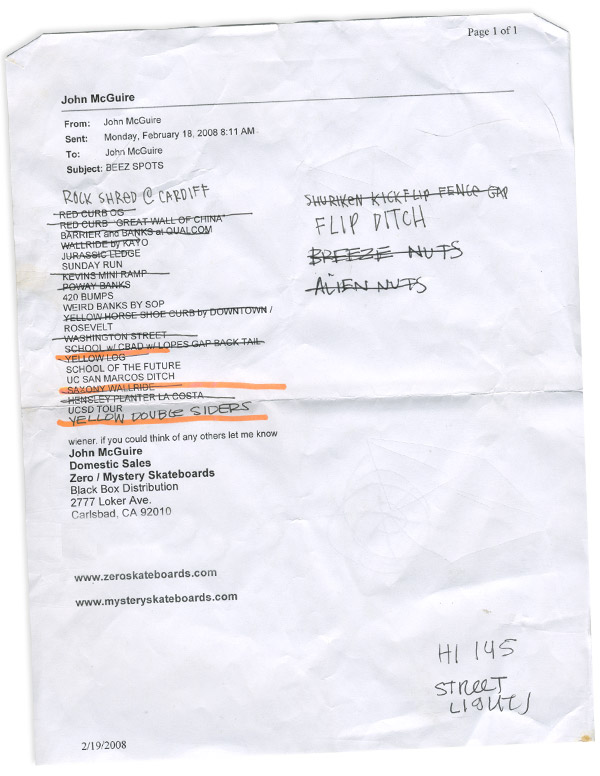 Page 1 of 1
John McGuire
From: John McGuire
Sent: Monday, February 18, 2008 8:11 AM
To: John McGuire
Subject: BEEZ SPOTS
ROCK SHRED @ CARDIFF
RED CURB OG
RED CURB "GREAT WALL OF CHINA"
BARRIER and BANKS at QUALCOM
WALLRIDE by KAYO
JURASSIC LEDGE
SUNDAY RUN
KEVINS MINI RAMP
POWAY BANKS
420 BUMPS
WEIRD BANKS BY SOP
YELLOW HORSE SHOE CURB by DOWNTOWN /
ROSEVELT
WASHINGTON STREET
SCHOOL w/ CBAD w/ LOPES GAP BACK TAIL
YELLOW LOG
SCHOOL OF THE FUTURE
UC SAN MARCOS DITCH
SAXONY WALLRIDE
HENSLEY PLANTER LA COSTA
UCSD TOUR
YELLOW DOUBLE SIDERS
SHURIKEN KICKFLIP FENCE GAP
FLIP DITCH
BREEZE NUTS
ALIEN NUTS
wiener. if you could think of any others let me know
John McGuire
Domestic Sales
Zero / Mystery Skateboards
Black Box Distribution
2777 Loker Ave.
Carlsbad, CA 92010
www.zeroskateboards.com
www.mysteryskateboards.com
HI 145
STREET
LIGHTS
2/19/2008